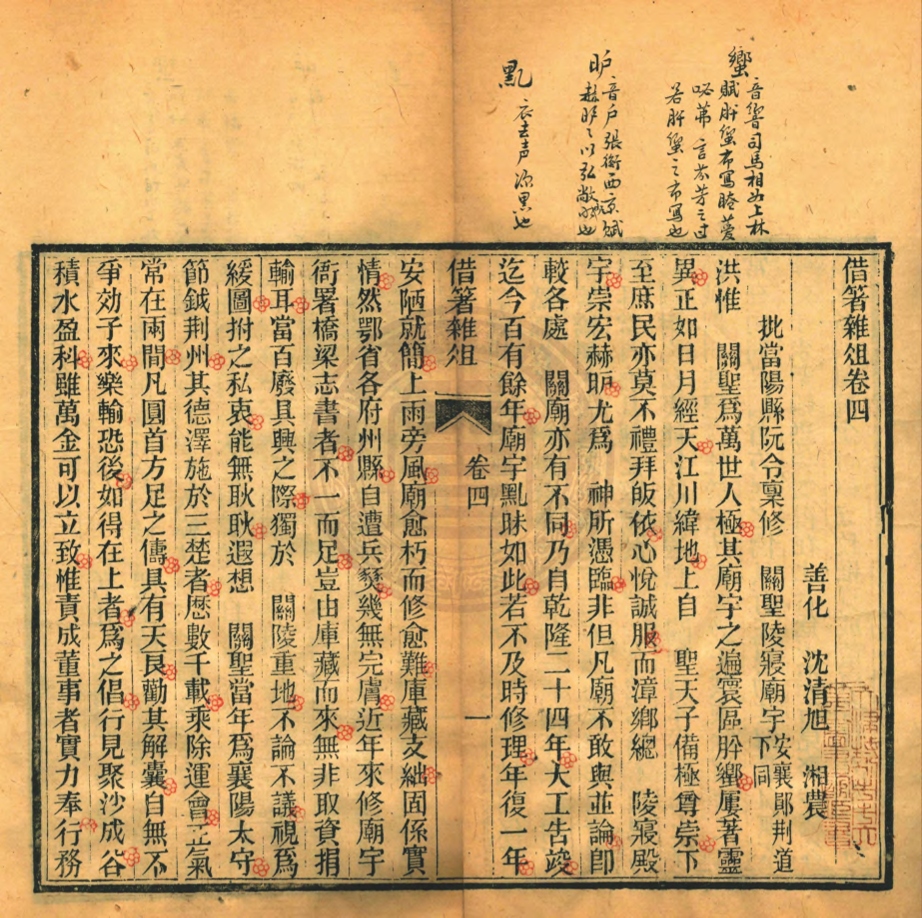 蠁
音響司馬相如上林
賦肸蠁布寫晻薆
咇茀言芬芳之过
若肸蠁之布寫也
昈
音户張衡西京賦
赫昈々以弘敞
衣去声深黑也
借箸雜俎卷四
善化 沈清旭 湘農
批當陽縣阮令稟修 關聖陵寢廟宇 安襄鄖荆道
下同
洪惟 關聖爲萬世人極其廟宇之遍寰區肸蠁屢著靈
異正如日月經天江川緯地上自 聖天子備極尊崇下
至庶民亦莫不禮拜皈依心悅誠服而漳鄉總 陵寢殿
宇崇宏赫昈尤爲 神所憑臨非但凡廟不敢與並論卽
較各處 關廟亦有不同乃自乾隆二十四年大工告竣
迄今百有餘年廟宇昧如此若不及時修理年復一年
借箸雜俎 卷四 一
安陋就簡上雨旁風廟愈朽而修愈難庫藏支絀固係實
情然鄂省各府州縣自遭兵燹幾無完膚近年來修廟宇
衙署橋梁志書者不一而足豈由庫藏而來無非取資捐
輸耳當百廢具興之際獨於 關陵重地不論不議視爲
緩圖拊之私衷能無耿耿遐想 關聖當年爲襄陽太守
節鉞荆州其德澤施於三楚者歷數千載乘除運會正氣
常在兩間凡圓首方足之儔具有天良勸其解囊自無不
爭効子來樂輸恐後如得在上者爲之倡行見聚沙成谷
積水盈科雖萬金可以立致惟責成董事者實力奉行務